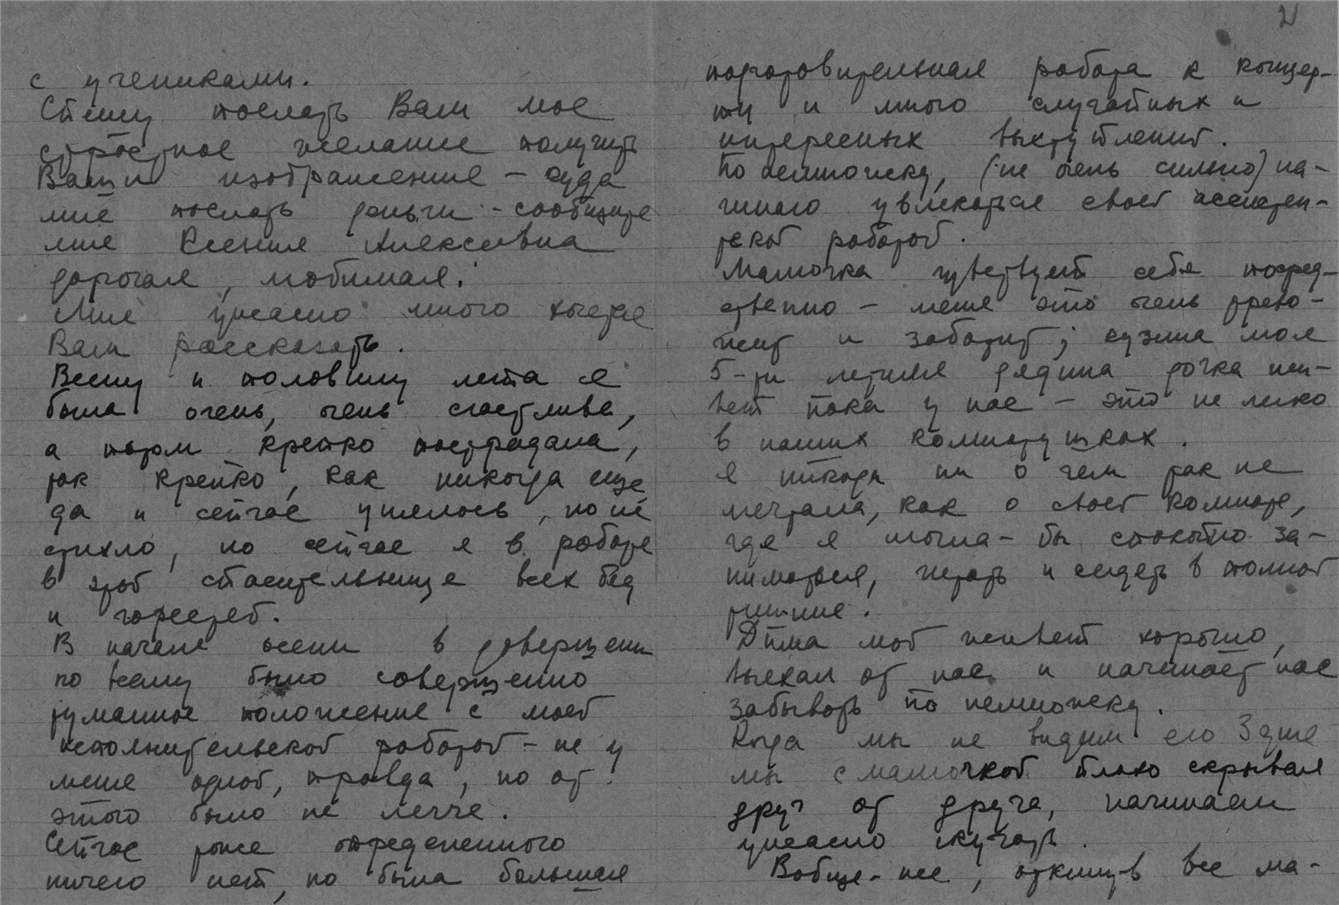 2
с учениками.
Спешу послать Вам мое
страстное желание получить
Ваши изображение – куда
мне послать деньги – сообщите
мне Ксения Алексевна
дорогая, любимая.
Мне ужасно много хочется
Вам рассказать.
Весну и половину лета я
была очень, очень счастлива,
а потом крепко пострадала,
так крепко, как никогда еще
да и сейчас уилось, но не
стихло, но сейчас я в работе
в этой спасительнице всех бед
и горестей.
В начале осени в довершени
по всему было совершенно
туманное положение с моей
исполнительской работой – не у
меня одной, правда, но от
этого было не легче.
Сейчас тоже определенного
ничего нет, но была большая
подготовительная работа к концер-
ту и много случайных и
интересных выступлений.
Понемножку, (не очень сильно) на-
чинаю увлекаться своей ассистен-
тской работой.
Мамочка чувствует себя посред-
ственно – меня это очень трево-
жит и заботит; кузина моя
5-ти летняя дядина дочка жи-
вет пока у нас – это не легко
в наших комнатушках.
Я никогда ни о чем так не
мечтала, как о своей комнате,
где я могла-бы спокойно за-
ниматься, играть и сидеть в полной
тишине.
Дима мой живет хорошо,
выехал от нас и начинает нас
забывать понемножку.
Когда мы не видим его 3 дня
мы с мамочкой плохо скрывая
друг от друга, начинаем
ужасно скучать.
Вобще-же, откинув все ма-